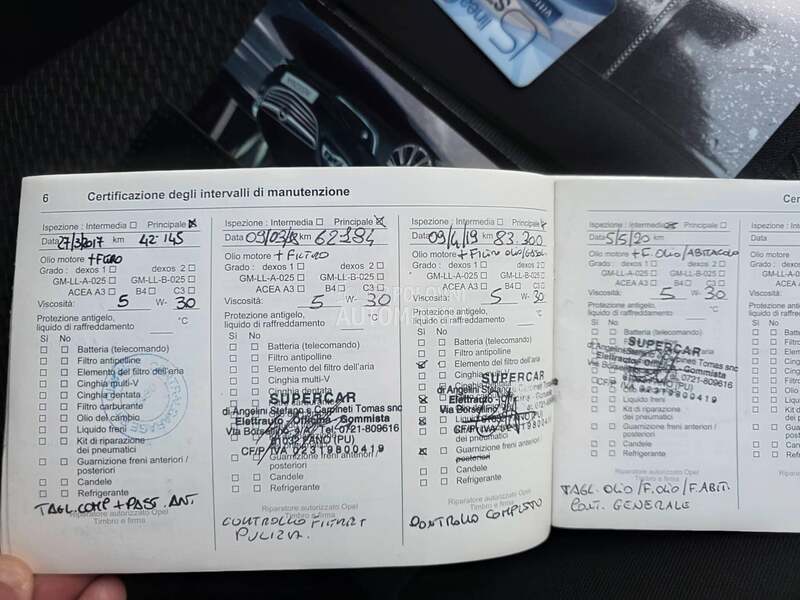 6 Certificazione degli intervalli di manutenzione
Ispezione : Intermedia Principale
Data 27/3/2017 km 42.145
Olio motore + FILTRO
Grado : dexos 1 dexos 2
GM-LL-A-025 GM-LL-B-025
ACEA A3 B4 C3
Viscosità: 5 W- 30
Protezione antigelo,
liquido di raffreddamento: °C
Sì No
Batteria (telecomando)
Filtro antipolline
Elemento del filtro dell'aria
Cinghia multi-V
Cinghia dentata
Filtro carburante
Olio del cambio
Liquido freni
Kit di riparazione
dei pneumatici
Guarnizione freni anteriori /
posteriori
Candele
Refrigerante
TAGL. COMP + PAST. ANT.
Riparatore autorizzato Opel
Timbro e firma
Ispezione : Intermedia Principale
Data 09/03/18 km 62284
Olio motore + FILTRO
Grado : dexos 1 dexos 2
GM-LL-A-025 GM-LL-B-025
ACEA A3 B4 C3
Viscosità: 5 W- 30
Protezione antigelo,
liquido di raffreddamento: °C
Sì No
Batteria (telecomando)
Filtro antipolline
Elemento del filtro dell'aria
Cinghia multi-V
Cinghia dentata
SUPERCAR
di Angelini Stefano e Carpineti Tomas snc
Elettrauto Officina Gommista
Tel. 0721-809616
61032 FANO (PU)
CF/P.IVA 02319800419
Guarnizione freni anteriori /
posteriori
Candele
Refrigerante
Riparatore autorizzato Opel
Timbro e firma
CONTROLLO FILTRI
PULIZIA.
Ispezione : Intermedia Principale
Data 09/4/19 km 83.300
Olio motore + FILTRO OLIO/GASOL.
Grado : dexos 1 dexos 2
GM-LL-A-025 GM-LL-B-025
ACEA A3 B4 C3
Viscosità: 5 W- 30
Protezione antigelo,
liquido di raffreddamento: °C
Sì No
Batteria (telecomando)
Filtro antipolline
Elemento del filtro dell'aria
Cinghia multi-V
SUPERCAR
di Angelini Stefano
Elettrauto
Via Borsellino
CF/P.IVA 02319800419
Guarnizione freni anteriori /
posteriori
Candele
Refrigerante
Riparatore autorizzato Opel
Timbro e firma
CONTROLLO COMPLETO
Ispezione : Intermedia Principale
Data 5/5/20 km
Olio motore + F. OLIO/ABITACOLO
Grado : dexos 1 dexos 2
GM-LL-A-025 GM-LL-B-025
ACEA A3 B4 C3
Viscosità: 5 W- 30
Protezione antigelo,
liquido di raffreddamento: °C
Sì No
Batteria (telecomando)
Filtro antipolline
SUPERCAR
Elettrauto Gommista
Tel. 0721-809616
CF/P.IVA 02319800419
Liquido freni
Kit di riparazione
dei pneumatici
Guarnizione freni anteriori /
posteriori
Candele
Refrigerante
Riparatore autorizzato Opel
Timbro e firma
TAGL. OLIO/F.OLIO/F.ABIT.
CONT. GENERALE
Certi
Ispezione
Data
Olio motore
Grado :
Viscosità:
Protezione
liquido di
Sì No
POLOVNI
AUTOM